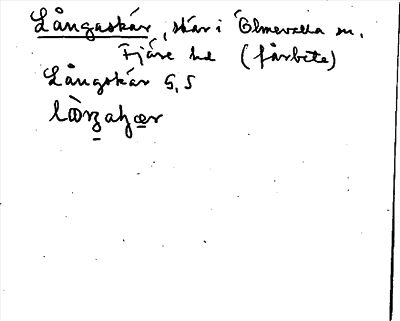 Långaskär, skär i Ölmevalla sn,
Fjäre hd (fårbete)
Långskär G, S